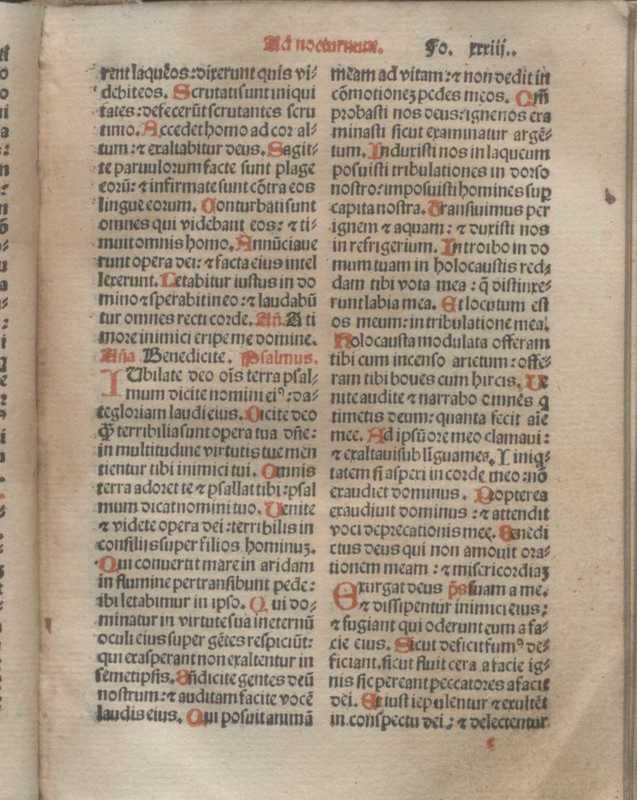 Ad nocturnum.
Fo. xxxiij.
rent laqueos: dixerunt quis vi-
debit eos. Scrutati sunt iniqui
tates: defecerūt scrutantes scru
tinio. Accedet homo ad cor al-
tum: ⁊ exaltabitur deus. Sagit-
te paruulorum facte sunt plage
eorū: ⁊ infirmate sunt cōtra eos
lingue eorum. Conturbati sunt
omnes qui videbant eos: ⁊ ti-
muit omnis homo. Annūciaue
runt opera dei: ⁊ facta eius intel
lexerunt. Letabitur iustus in do
mino ⁊ sperabit in eo: ⁊ laudabū
tur omnes recti corde. Añ. A ti
more inimici eripe me domine.
Aña Benedicite. Psalmus.
IUbilate deo oīs terra psal-
mum dicite nomini eiꝰ: da-
te gloriam laudi eius. Dicite deo
ꝙ terribilia sunt opera tua dñe:
in multitudine virtutis tue men
tientur tibi inimici tui. Omnis
terra adoret te ⁊ psallat tibi: psal
mum dicat nomini tuo. Uenite
⁊ videte opera dei: terribilis in
consiliis super filios hominuꝫ.
Qui conuertit mare in aridam
in flumine pertransibunt pede:
ibi letabimur in ipso. Qui do-
minatur in virtute sua in eternū
oculi eius super gētes respiciūt:
qui exasperant non exaltentur in
semetipsis. Bñdicite gentes deū
nostrum: ⁊ auditam facite vocē
laudis eius. Qui posuit animā
meam ad vitam: ⁊ non dedit in
cōmotioneꝫ pedes meos. Qm̄
probasti nos deus: igne nos exa
minasti sicut examinatur argē-
tum. Induxisti nos in laqueum
posuisti tribulationes in dorso
nostro: imposuisti homines suꝑ
capita nostra. Transiuimus per
ignem ⁊ aquam: ⁊ duxisti nos
in refrigerium. Introibo in do
mum tuam in holocaustis red-
dam tibi vota mea: q̄ distinxe-
runt labia mea. Et locutum est
os meum: in tribulatione mea.
Holocausta medulata offeram
tibi cum incenso arietum: offe-
ram tibi boues cum hircis. Ue
nite audite ⁊ narrabo omnes q
timetis deum: quanta fecit aīe
mee. Ad ipsū ore meo clamaui:
⁊ exaltaui sub līgua mea. Iniq-
tatem si aspexi in corde meo: nō
exaudiet dominus. Propterea
exaudiuit dominus: ⁊ attendit
voci deprecationis mee. Benedi
ctus deus qui non amouit ora-
tionem meam: ⁊ misericordiaꝫ
Exurgat deus p̄s suam a me.
⁊ dissipentur inimici eius:
⁊ fugiant qui oderunt eum a fa-
cie eius. Sicut deficit fumꝰ de-
ficiant. sicut fluit cera a facie ig-
nis sic pereant peccatores a facie
dei. Et iusti epulentur ⁊ exultēt
in conspectu dei: ⁊ delectentur